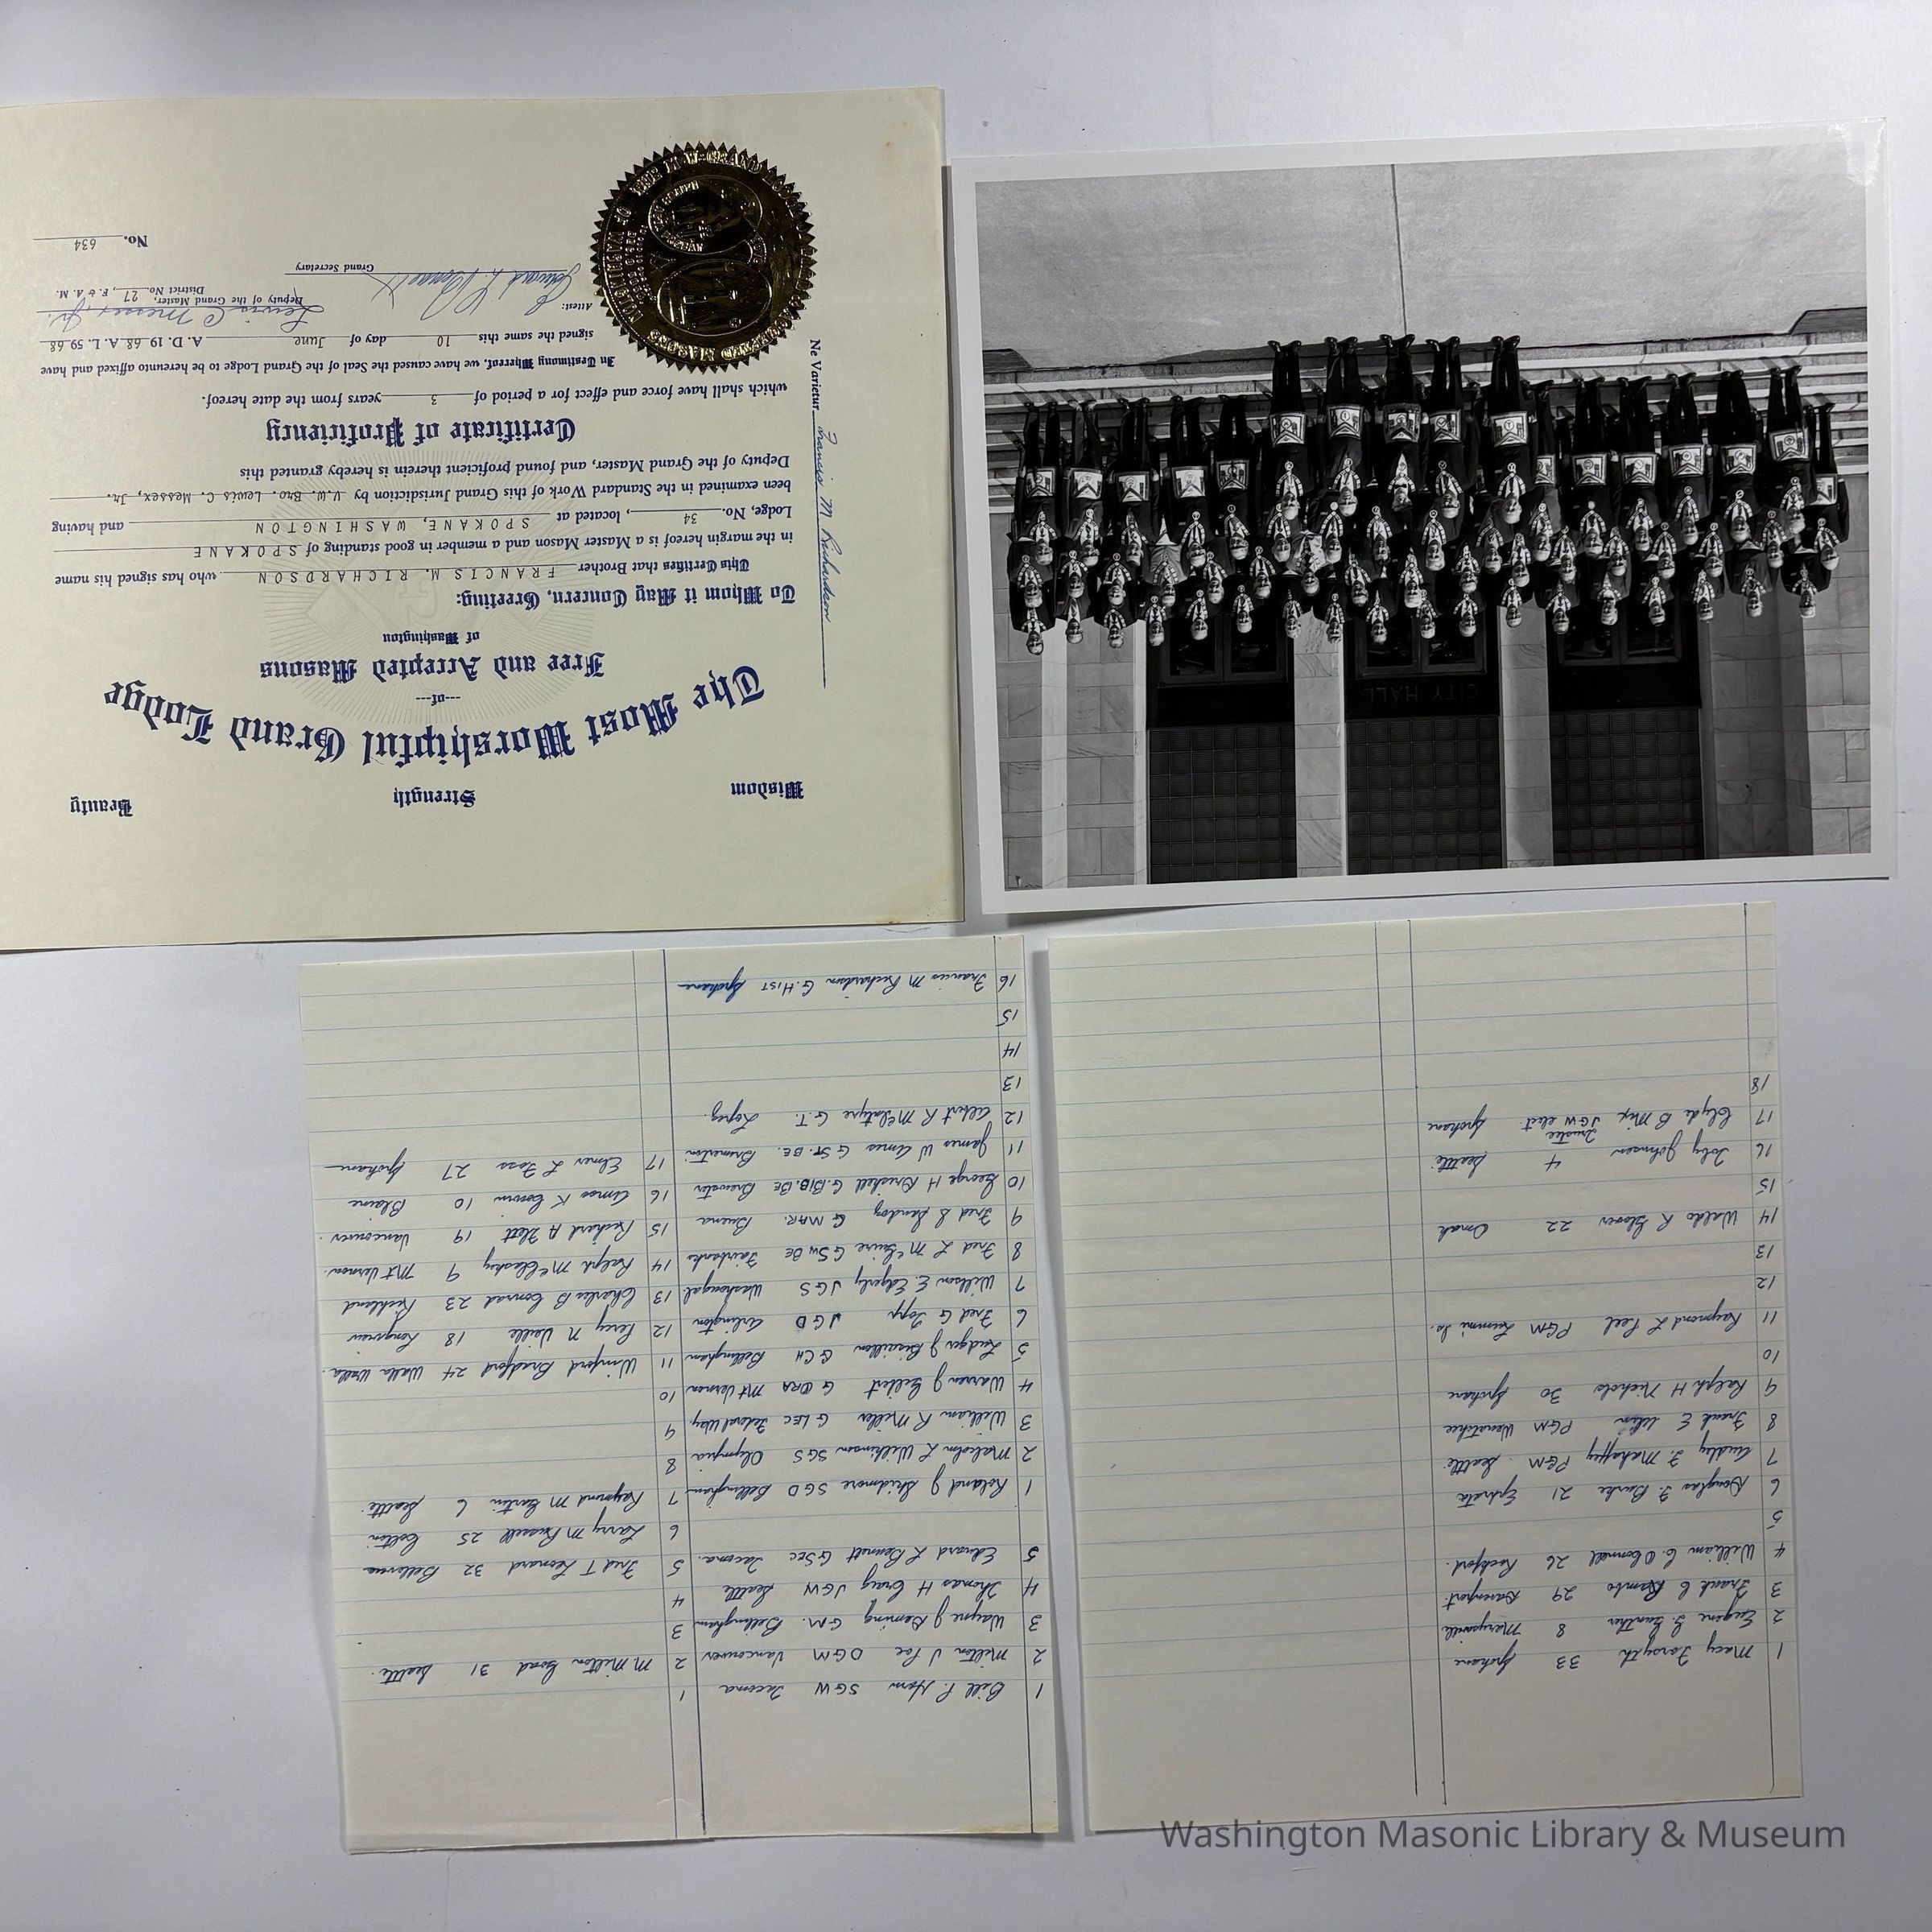 Wisdom Strength Beauty
The Most Worshipful Grand Lodge
---of---
Free and Accepted Masons
of Washington
To Whom it May Concern, Greeting:
This Certifies that Brother FRANCIS M. RICHARDSON who has signed his name
in the margin hereof is a Master Mason and a member in good standing of SPOKANE
Lodge, No. 34, located at SPOKANE, WASHINGTON and having
been examined in the Standard Work of this Grand Jurisdiction by V.W. Bro. Lewis C. Messex, Jr.
Deputy of the Grand Master, and found proficient therein is hereby granted this
Certificate of Proficiency
which shall have force and effect for a period of 3 years from the date hereof.
In Testimony Whereof, we have caused the Seal of the Grand Lodge to be hereunto affixed and have
signed the same this 10 day of June A. D. 19 68 A. L. 59 68
Lewis C Messex, Jr.
Deputy of the Grand Master,
District No. 27, F. & A. M.
Attest:
Grand Secretary
No. 634
Ne Varietur Francis M Richardson
CITY HALL
1 Bill P. Horn SGW Tacoma
2 Milton J Poe DGM Vancouver
3 Wayne J Deming GM. Bellingham
4 Thomas H Craig JGW Seattle
5 Edward L Bennett G Sec Tacoma.
1 Roland J Skidmore SGD Bellingham
2 Malcolm L Wilkinson SGS Olympia
3 William R Miller G LEC Federal Way
4 Warren J Gilbert G ORA Mt Vernon
5 Ludger J G CH Bellingham
6 Fred G Topp JGD Arlington
7 Willson E. Edgerly JGS Washougal
8 Fred L McGuire G Sw Be Fairbanks
9 Fred S Sandoz G MAR. Buena
10 George H Driskell G.BIB.BE Brewster
11 James W Ames G ST. BE. Bremerton
12 Albert R McIntyre G.T. Lopez.
13
14
15
16 Francis M Richardson G. HIST Spokane
1
2 M Milton Goad 31 Seattle.
3
4
5 Fred T Leonard 32 Bellevue
6 Larry M Russell 25 Colton
7 Raymond M Curtin 6 Seattle.
8
9
10
11 Winford Bradford 24 Walla Walla.
12 Percy N Vaille 18 Longview
13 Charles B Conrad 23 Richland
14 Ralph McCleskey 9 Mt Vernon.
15 Richard A Flett 19 Vancouver.
16 Amos K 10 Blaine
17 Elmer L Foss 27 Spokane
1 Macy Forsyth 33 Spokane
2 Eugene G. Gunther 8 Marysville
3 Frank C Rambo 29 Davenport.
4 William C. O'Connell 26 Rockford.
5
6 Douglas F. Burke 21 Ephrata
7 Audley F. Mahaffey PGM Seattle.
8 Frank E PGM Wenatchee
9 Ralph H Nichols 30 Spokane
10
11 Raymond L Peel PGM Lummi Is.
12
13
14 Waldo R Glover 22 Omak
15
16 Toby Johnson 4 Seattle.
Trustee
17 Clyde B Mix JGW elect Spokane
18
Washington Masonic Library & Museum